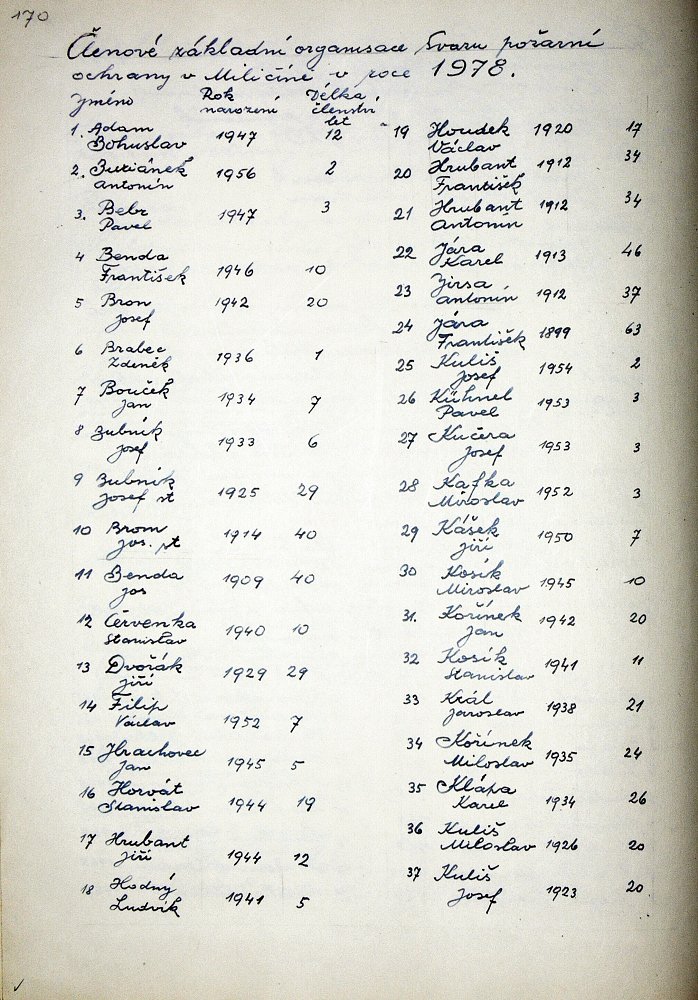 170
Členové základní organisace Svazu požární
ochrany v Miličíně v roce 1978.
Jméno Rok narození Délka členství let
1. Adam Bohuslav 1947 12
2. Buriánek Antonín 1956 2
3. Bebr Pavel 1947 3
4 Benda František 1946 10
5 Brom Josef 1942 20
6 Brabec Zdeněk 1936 1
7 Bouček Jan 1934 7
8 Bubník Josef 1933 6
9 Bubník Josef st 1925 29
10 Brom Jos. st 1914 40
11 Benda Jos 1909 40
12 Červenka Stanislav 1940 10
13 Dvořák Jiří 1929 29
14 Filip Václav 1952 7
15 Hrachovec Jan 1945 5
16 Horvát Stanislav 1944 19
17 Hrubant Jiří 1944 12
18 Hodný Ludvík 1941 5
19 Houdek Václav 1920 17
20 Hrubant František 1912 34
21 Hrubant Antonín 1912 34
22 Jára Karel 1913 46
23 Jirsa Antonín 1912 37
24 Jára František 1899 63
25 Kuliš Josef 1954 2
26 Kühnel Pavel 1953 3
27 Kučera Josef 1953 3
28 Kafka Miroslav 1952 3
29 Kášek Jiří 1950 7
30 Kosík Miroslav 1945 10
31. Kořínek Jan 1942 20
32 Kosík Stanislav 1941 11
33 Král Jaroslav 1938 21
34 Kořínek Miloslav 1935 24
35 Klápa Karel 1934 26
36 Kuliš Miloslav 1926 20
37 Kuliš Josef 1923 20